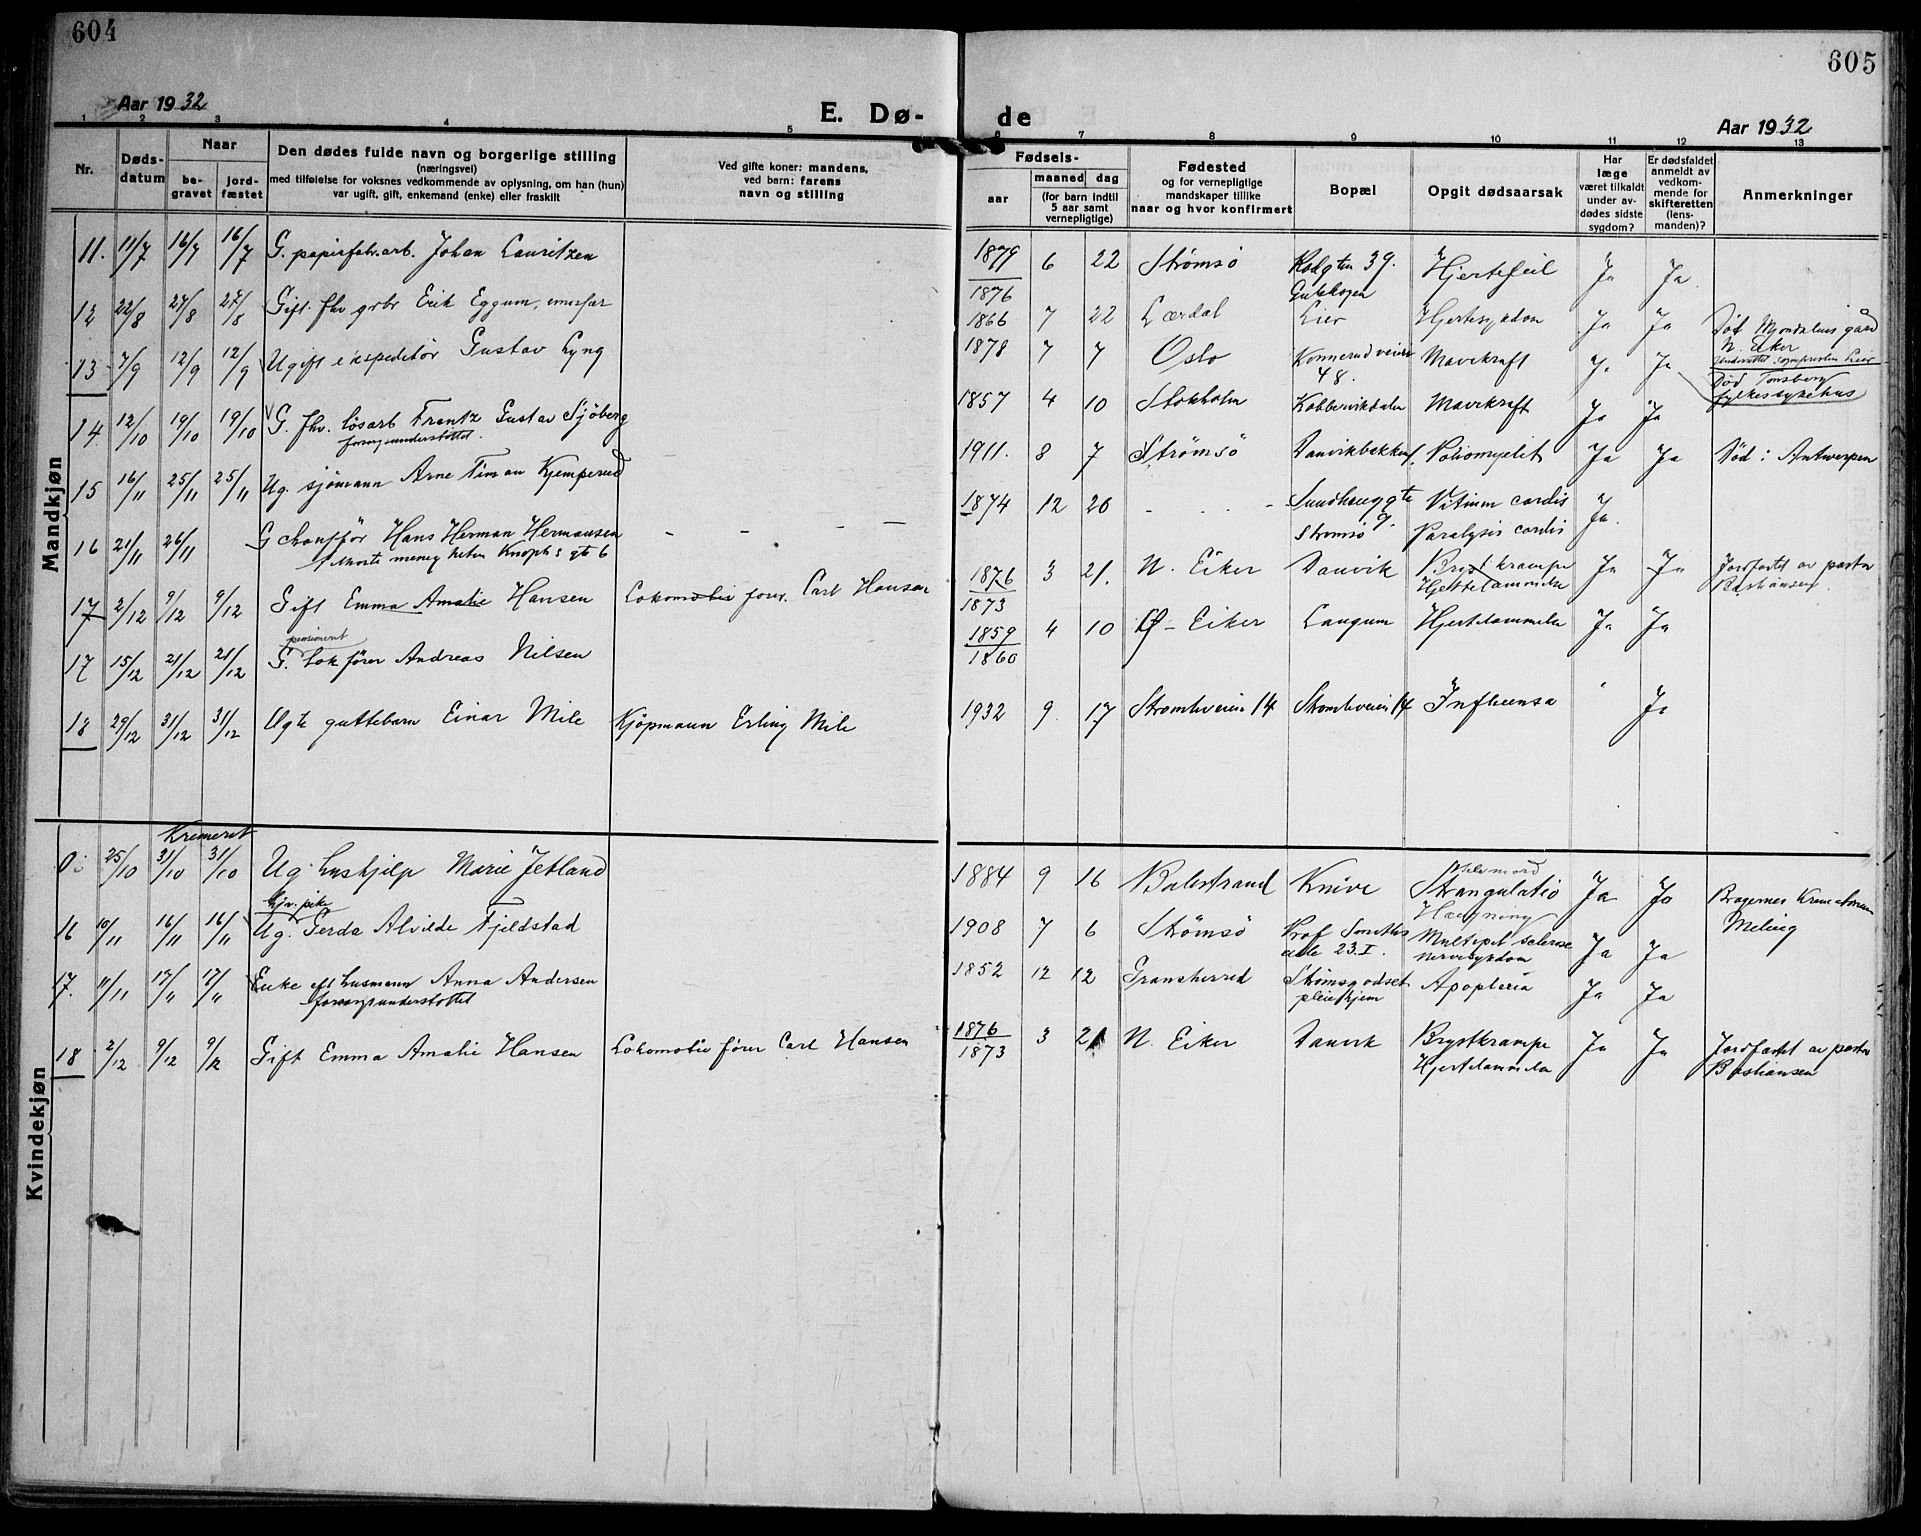 604
605
Aar 1932
E. Dø-
de
Aar 1932
1 2 3 4 5 6 7 8 9 10 11 12 13
Nr.
Døds-
datum
Naar
be-
gravet
jord-
fæstet
Den dødes fulde navn og borgerlige stilling
(næringsvei)
med tilføielse for voksnes vedkommende av oplysning, om han (hun)
var ugift, gift, enkemand (enke) eller fraskilt
Ved gifte koner: mandens,
ved barn: farens
navn og stilling
Fødsels-
aar
maaned
dag
(for barn indtil
5 aar samt
vernepligtige)
Fødested
og for vernepligtige
mandskaper tillike
naar og hvor konfirmert
Bopæl
Opgit dødsaarsak
Har
læge
været tilkaldt
under av-
dødes sidste
sygdom?
Er dødsfaldet
anmeldt av
vedkom-
mende for
skifteretten
(lens-
manden)?
Anmerkninger
Mandkjøn
11. 11/7 16/7 16/7 G. papirfabr.arb. Johan Lauritzen 1879 6 22 Strømsö 39. Hjertefeil Ja Ja
12 22/8 27/8 27/8 Gift. fhv. grbr Erik Eggum, 1876
1866 7 22 Lærdal Lier Hjertesykdom Ja Ja Död Mjøndalens gård
N. Eker
13 7/9 12/9 12/9 Ugift ekspeditör Gustav Lyng 1878 7 7 Oslo Konnerudveien
48. Mavekræft Ja Ja Död Tonsberg
fylkessykehus
14 12/10 19/10 19/10 G. fhv. løsarb Frantz Gustav Sjöberg
forsorgsunderstöttet. 1857 4 10 Stokholm Kobbervikdalen Mavekræft Ja Ja
15 16/11 25/11 25/11 Ug. sjömann Arne Timan Kjemperud 1911. 8 7 Strømsö Danvikbakken Poliomyelit Ja Ja Död i Antwerpen
16 21/11 26/11 G chaufför Hans Herman Hermansen
menigheten Knophs gt 6 - - - - 1874 12 20 - - - Sundhauggt
9.
Strømsö Vitium cordis
Paralysis cordis Ja.
17 2/12 9/12 9/12 Gift Emma Amalie Hansen Lokomotiv förer. Carl Hansen 1876
1873 3 21. N. Eiker Danvik Brystkrampe
Hjertelammelse Ja Ja Jordfæstet av pastor
Bastiansen.
17 15/12 21/12 21/12 pensioneret
G. Lokförer Andreas Nilsen 1859
1860 4 10 Ø- Eiker Langum Hjertelammelse Ja Ja
18 29/12 31/12 31/12 Ugte guttebarn Einar Mile Kjöpmann Erling Mile 1932 9. 17 Stromhveien 14 Stromhveien 14 Influensa Ja
Kvindekjøn
Kremeret
0: 25/10 31/10 31/10 Ug. hushjelp Marie Jetland 1884 9 16 Balestrand Knive Selvmord
Strangulatio
Hængning Ja Ja Bragernes Krematorium
Meling
16 10/11 16/11 16/11 hjv. pike
Ug. Gerda Alvilde Fjeldstad 1908 7 6 Strømsö Prof Smiths
alle 23.I. Multipel sclerose
nervesykdom Ja Ja
17. 11/11 17/11 17/11 Enke eft husmann Anna Andersen
forsorgsunderstöttet 1852 12 12 Gransherred Strømsgodset
pleiehjem Apoplexia Ja Ja
18 2/12 9/12 9/12 Gift Emma Amalie Hansen Lokomotiv förer Carl Hansen 1876
1873 3 21 N. Eiker Danvik Brystkrampe
Hjertelammelse Ja Ja Jordfæstet av pastor
Bastiansen